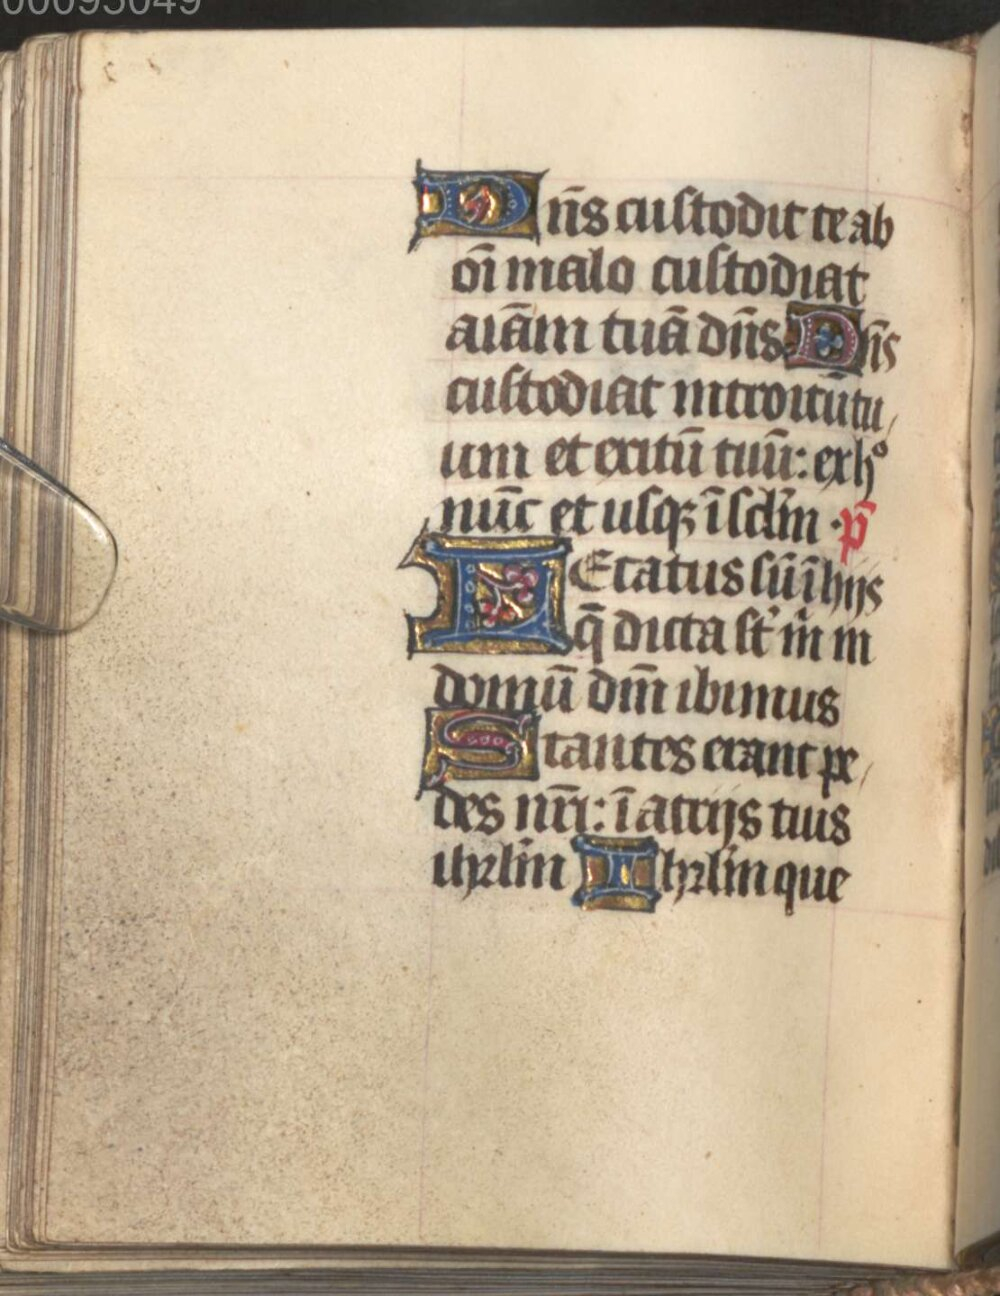 00095049
Dn̄s custodit te ab
oī malo custodiat
aīam tuā dn̄s Dn̄s
custodiat introitū tu
um et exitū tuū: ex hᵒ
nūc et usqꝫ ī sclm̄ · p̄
LEtatus sū ī hijs
q̄ dicta st̄ m̄ in
domū dn̄i ibimus
Stantes erant pe
des nr̄i: ī atrijs tuis
ihrlm̄ Ihrlm̄ que